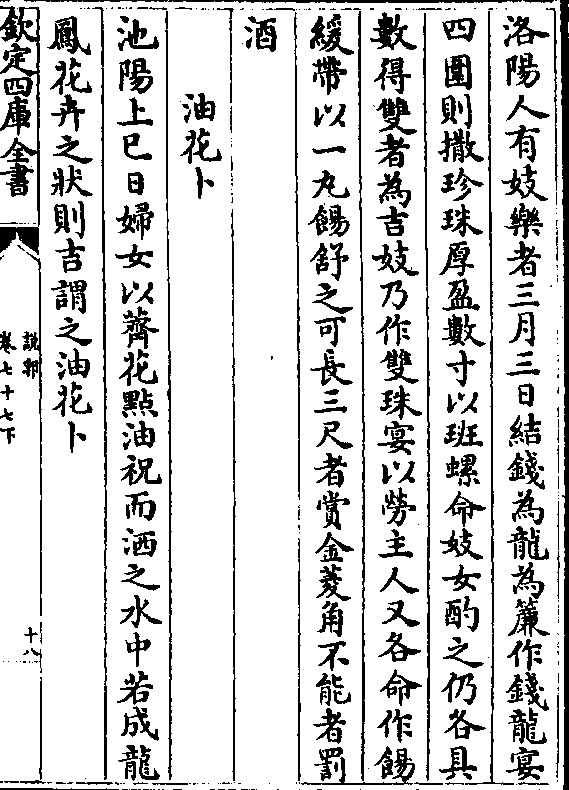 洛陽人有妓樂者三月三日結錢為龍為簾作錢龍宴
四圍則撒珍珠厚盈數寸以班螺命妓女酌之仍各具
數得雙者為吉妓乃作雙珠宴以勞主人又各命作餳
緩帶以一丸餳舒之可長三尺者賞金菱角不能者罰
酒
油花卜
池陽上巳日婦女以薺花點油祝而洒之水中若成龍
鳳花卉之狀則吉謂之油花卜
欽定四庫全書
說郛
卷七十七下
十八